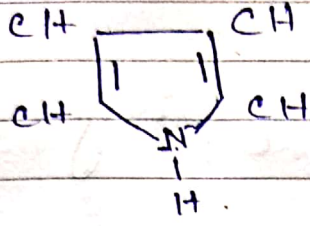 CH CH
CH CH
N
H.